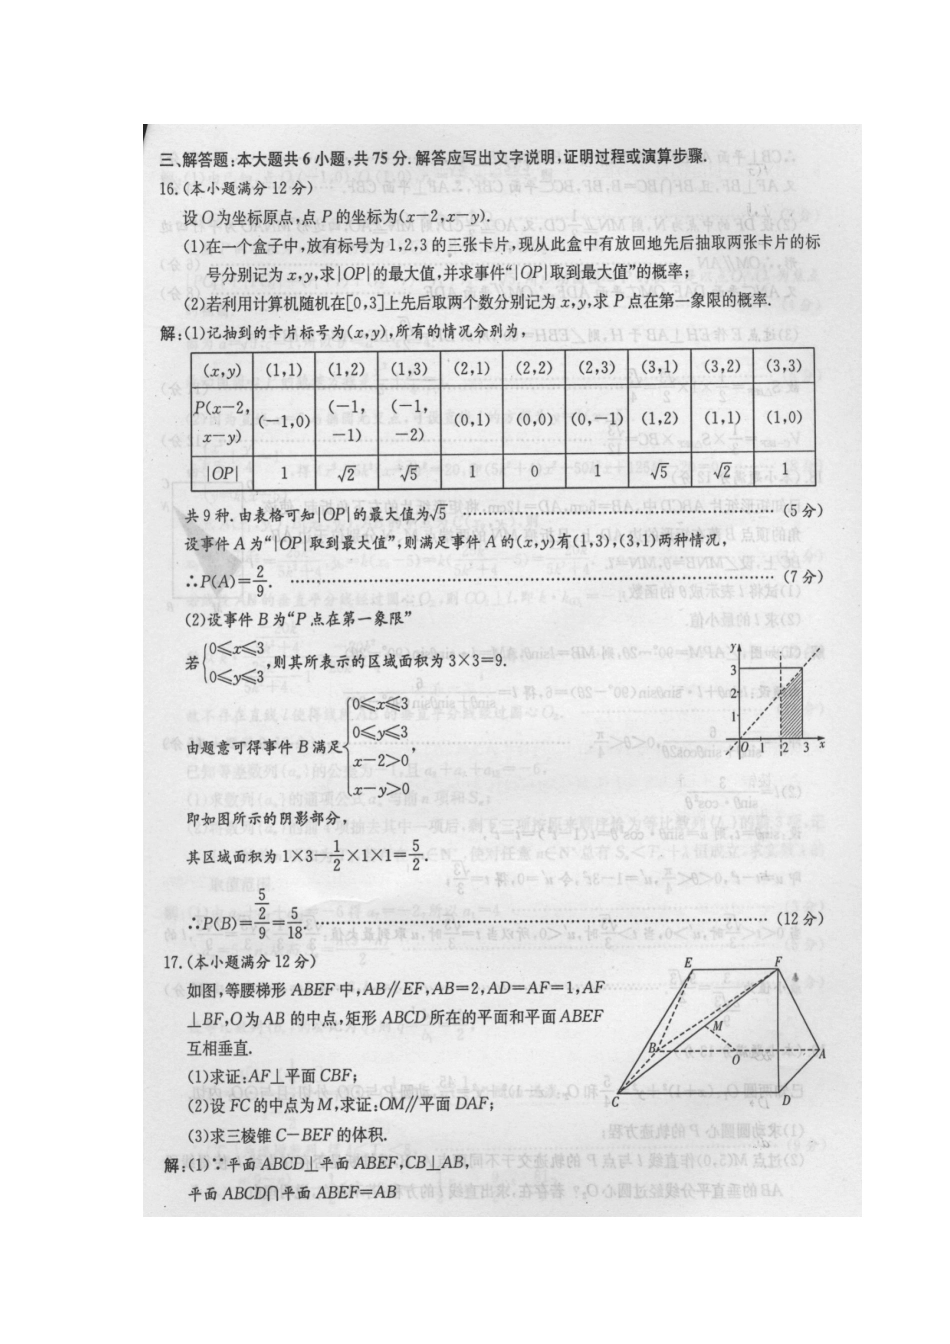 三、解答题:本大题共6小题,共75分.解答应写出文字说明,证明过程或演算步骤.
16.(本小题满分12分)
设O为坐标原点,点P的坐标为(x-2,x-y).
(1)在一个盒子中,放有标号为1,2,3的三张卡片,现从此盒中有放回地先后抽取两张卡片的标
号分别记为x,y,求|OP|的最大值,并求事件“|OP|取到最大值”的概率;
(2)若利用计算机随机在[0,3]上先后取两个数分别记为x,y,求P点在第一象限的概率.
解:(1)记抽到的卡片标号为(x,y),所有的情况分别为,
(x,y) (1,1) (1,2) (1,3) (2,1) (2,2) (2,3) (3,1) (3,2) (3,3)
P(x-2,x-y) (-1,0) (-1,-1) (-1,-2) (0,1) (0,0) (0,-1) (1,2) (1,1) (1,0)
|OP| 1 √2 √5 1 0 1 √5 √2 1
共9种.由表格可知|OP|的最大值为√5. ……(5分)
设事件A为“|OP|取到最大值”,则满足事件A的(x,y)有(1,3),(3,1)两种情况,
∴P(A)=2/9. ……(7分)
(2)设事件B为“P点在第一象限”
若{0≤x≤3 0≤y≤3,则其所表示的区域面积为3×3=9.
由题意可得事件B满足{0≤x≤3 0≤y≤3 x-2>0 x-y>0,
y 3 2 1 O 1 2 3 x
即如图所示的阴影部分,
其区域面积为1×3-1/2×1×1=5/2.
∴P(B)=(5/2)/9=5/18. ……(12分)
17.(本小题满分12分)
如图,等腰梯形ABEF中,AB∥EF,AB=2,AD=AF=1,AF
⊥BF,O为AB的中点,矩形ABCD所在的平面和平面ABEF
互相垂直.
(1)求证:AF⊥平面CBF;
(2)设FC的中点为M,求证:OM∥平面DAF;
(3)求三棱锥C-BEF的体积.
E F M B O A C D
解:(1)∵平面ABCD⊥平面ABEF,CB⊥AB,
平面ABCD∩平面ABEF=AB